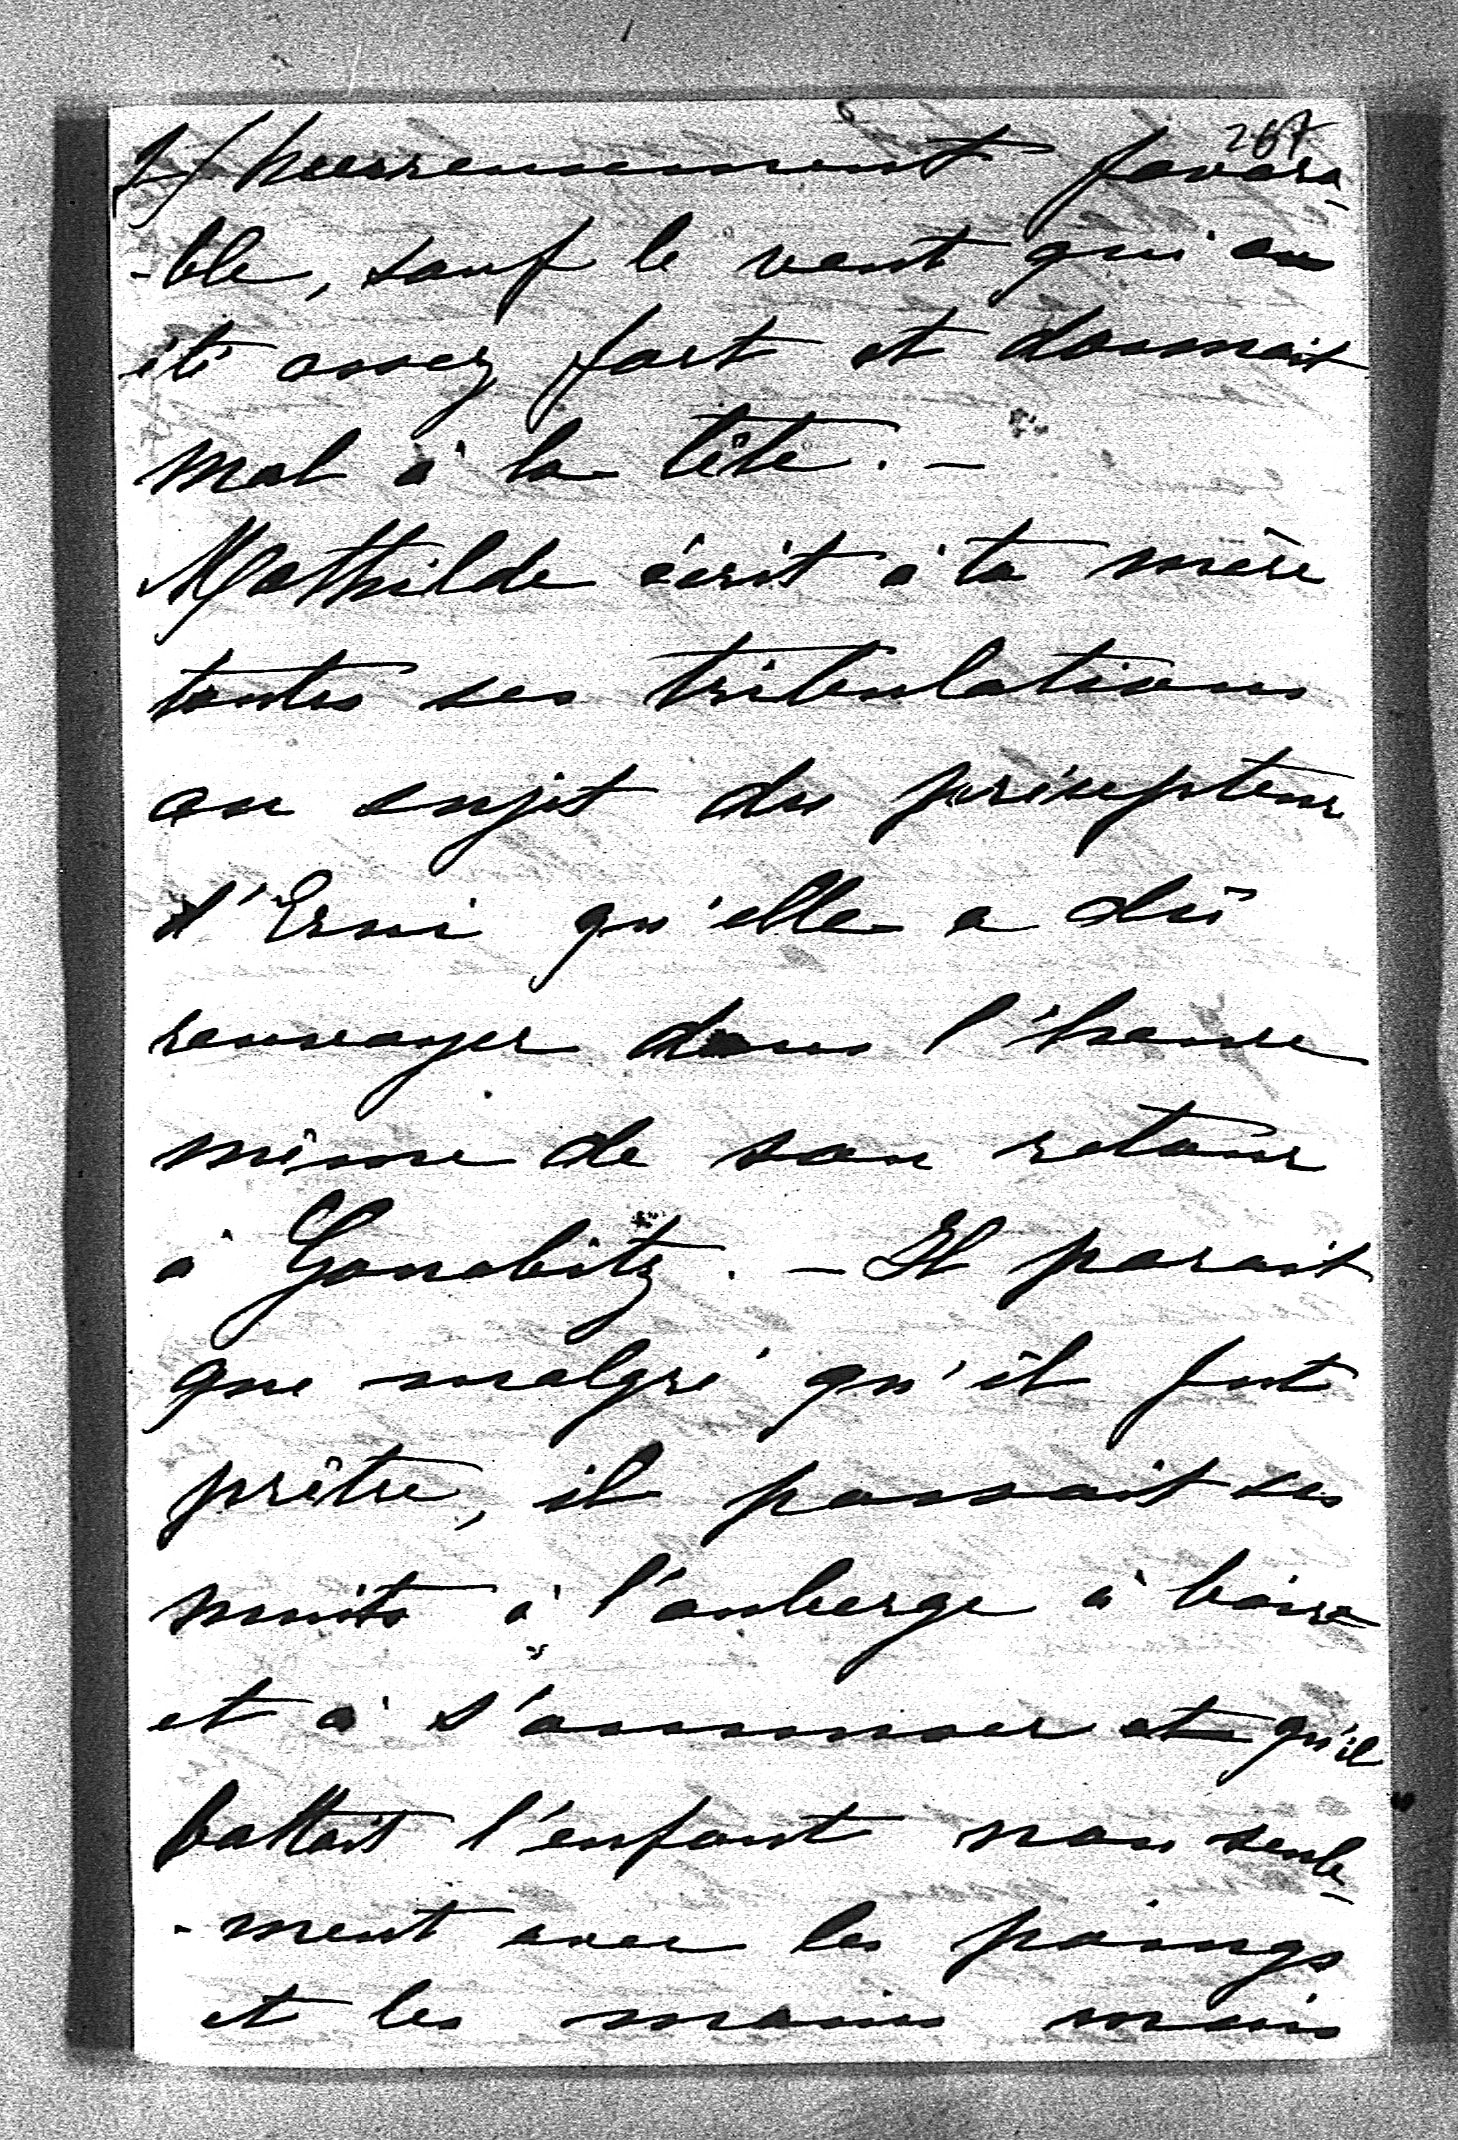 267
2/ heureusement favora-
-ble, sauf le vent qui a
été assez fort et donnait
mal à la tête. –
Mathilde écrit à ta mère
toutes ses tribulations
au sujet du précepteur
d'Erni qu'elle a dû
renvoyer dans l'heure
même de son retour
à Gonobitz. – Il parait
que malgré qu'il fut
prêtre, il passait ses
nuits à l'auberge à boire
et à s'assommer et qu'il
battait l'enfant non seule-
-ment avec les poings
et les mains mais